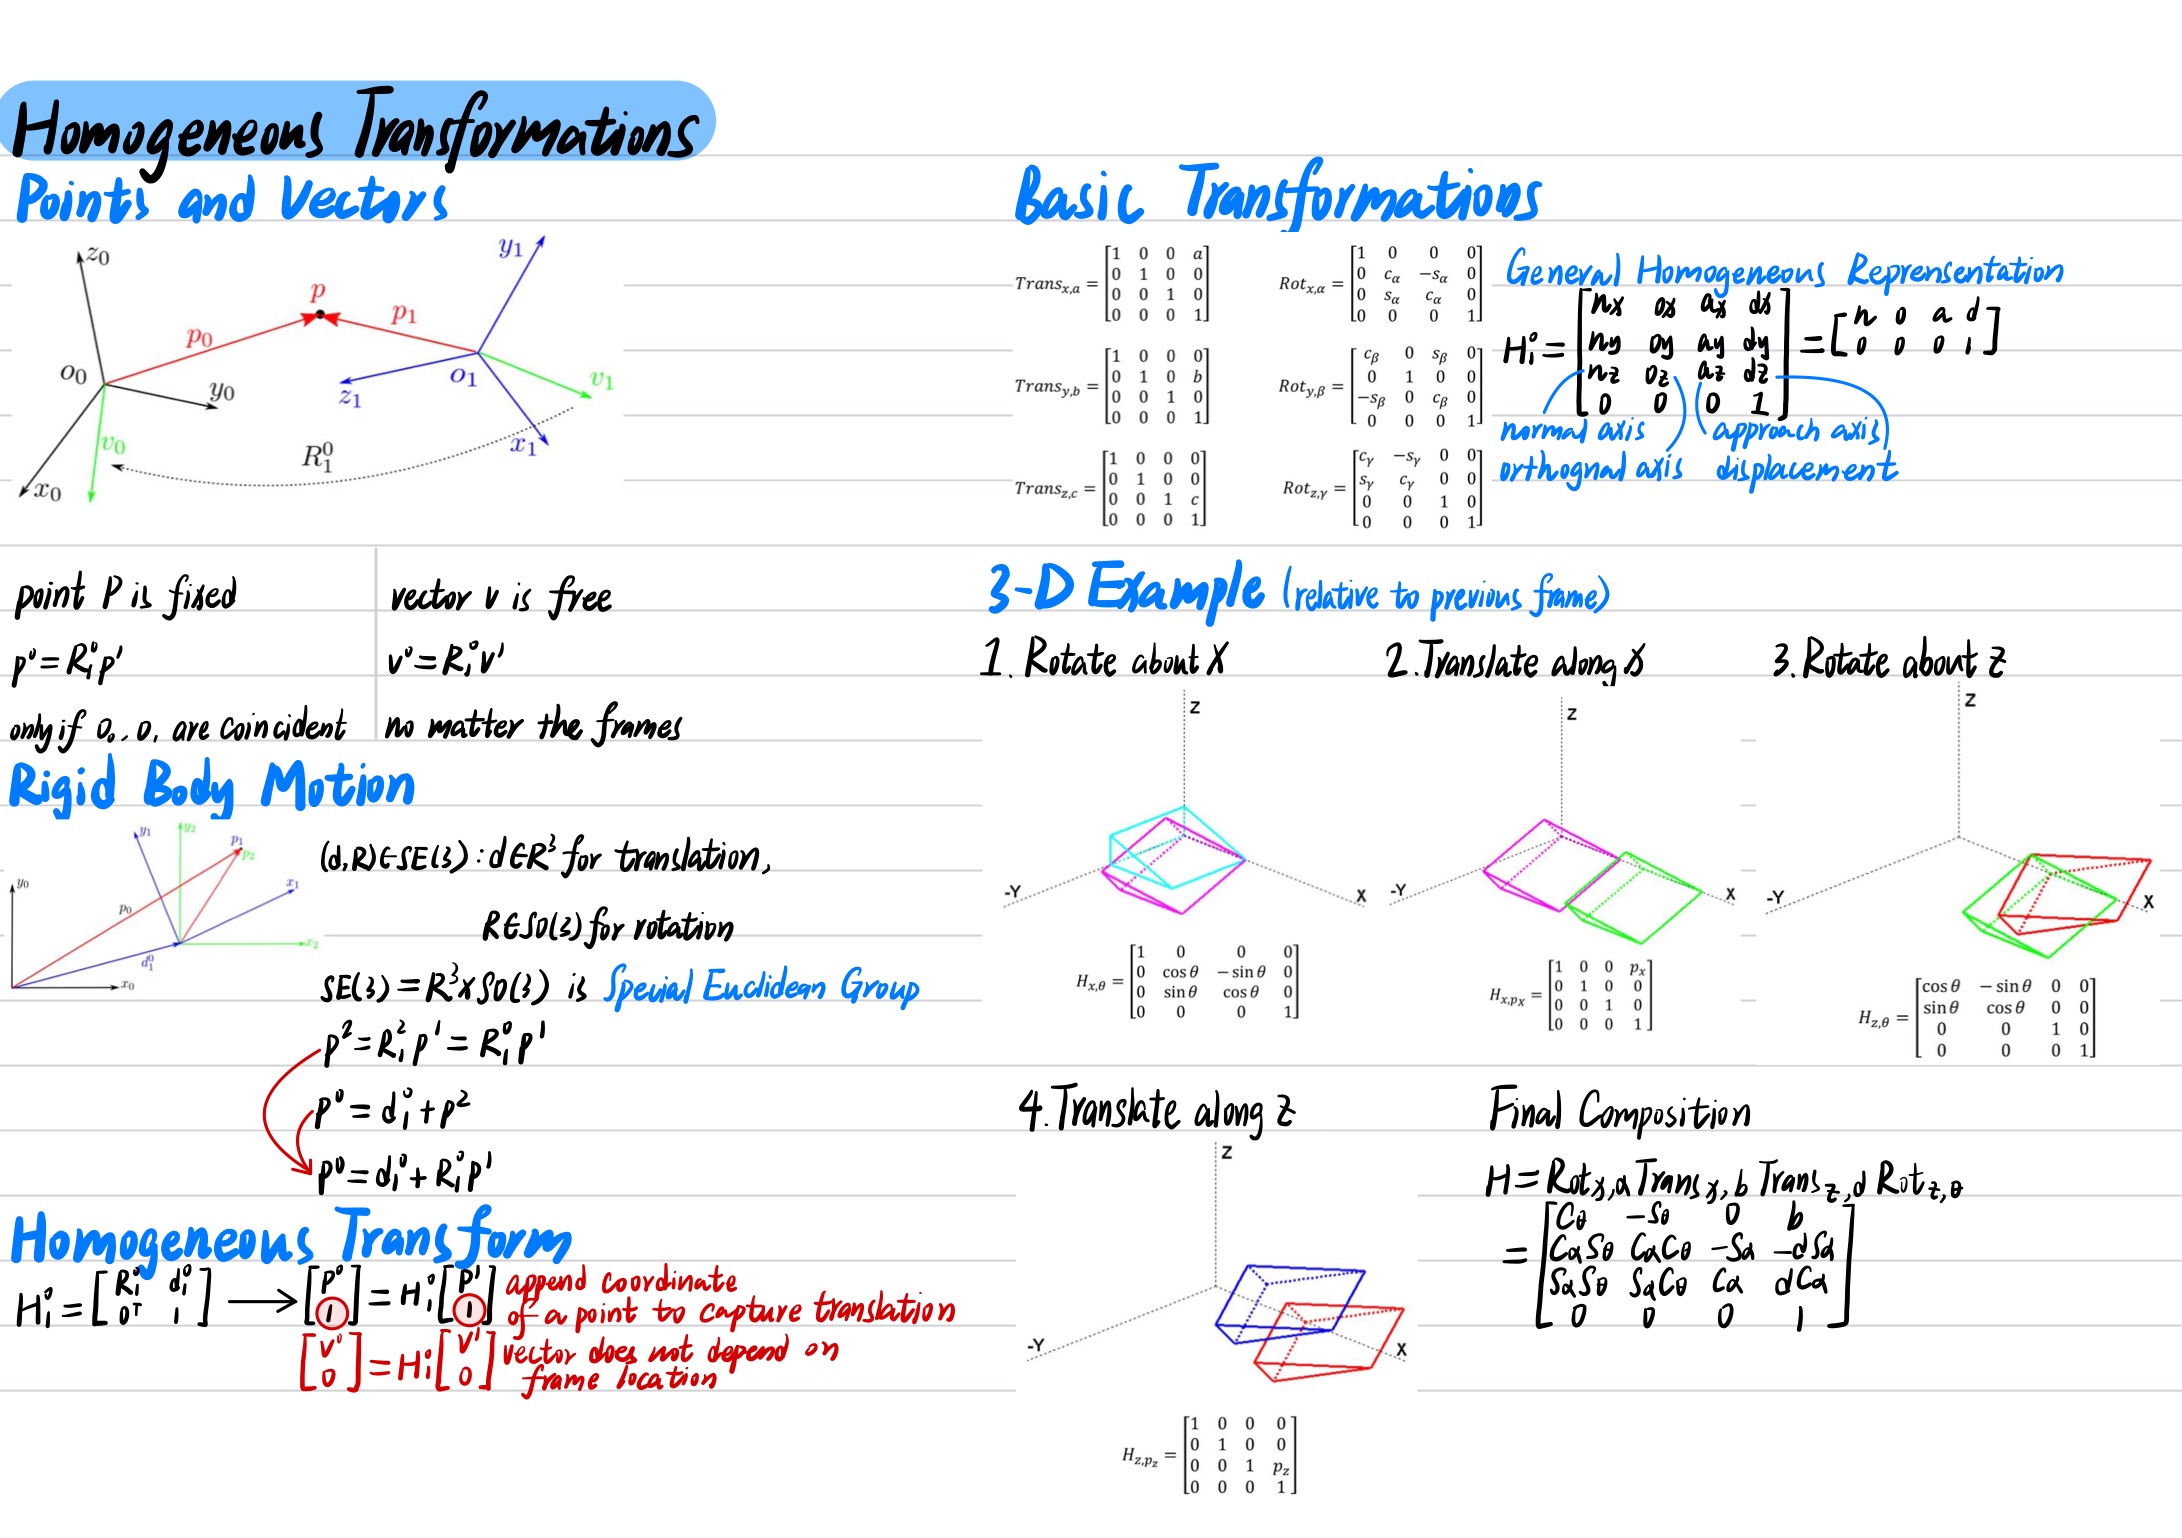 Homogeneous Transformations
Points and Vectors
z₀
y₁
p
p₀
p₁
o₀
y₀
z₁
o₁
v₁
v₀
x₁
R₁⁰
x₀
point P is fixed
p⁰ = R₁⁰p¹
only if O₀, O₁ are coincident
vector v is free
v⁰ = R₁⁰v¹
no matter the frames
Rigid Body Motion
y₁
y₂
p₁
p₂
y₀
x₁
p₀
d₁⁰
x₂
x₀
(d,R)∈SE(3) : d∈R³ for translation,
R∈SO(3) for rotation
SE(3) = R³×SO(3) is Special Euclidean Group
p² = R₁²p¹ = R₁⁰p¹
p⁰ = d₁⁰ + p²
p⁰ = d₁⁰ + R₁⁰p¹
Homogeneous Transform
H₁⁰ = [R₁⁰ d₁⁰; 0ᵀ 1] → [p⁰; 1] = H₁⁰ [p¹; 1]
append coordinate
of a point to capture translation
[v⁰; 0] = H₁⁰ [v¹; 0]
vector does not depend on
frame location
Basic Transformations
Trans_{x,a} = [1 0 0 a; 0 1 0 0; 0 0 1 0; 0 0 0 1]
Rot_{x,α} = [1 0 0 0; 0 c_α −s_α 0; 0 s_α c_α 0; 0 0 0 1]
Trans_{y,b} = [1 0 0 0; 0 1 0 b; 0 0 1 0; 0 0 0 1]
Rot_{y,β} = [c_β 0 s_β 0; 0 1 0 0; −s_β 0 c_β 0; 0 0 0 1]
Trans_{z,c} = [1 0 0 0; 0 1 0 0; 0 0 1 c; 0 0 0 1]
Rot_{z,γ} = [c_γ −s_γ 0 0; s_γ c_γ 0 0; 0 0 1 0; 0 0 0 1]
General Homogeneous Reprensentation
H₁⁰ = [nx ox ax dx; ny oy ay dy; nz oz az dz; 0 0 0 1] = [n o a d; 0 0 0 1]
normal axis
approach axis
orthognal axis
displacement
3-D Example (relative to previous frame)
1. Rotate about X
Z
-Y
X
H_{x,θ} = [1 0 0 0; 0 cos θ − sin θ 0; 0 sin θ cos θ 0; 0 0 0 1]
2. Translate along X
Z
-Y
X
H_{x,pₓ} = [1 0 0 pₓ; 0 1 0 0; 0 0 1 0; 0 0 0 1]
3. Rotate about Z
Z
-Y
X
H_{z,θ} = [cos θ − sin θ 0 0; sin θ cos θ 0 0; 0 0 1 0; 0 0 0 1]
4. Translate along Z
Z
-Y
X
H_{z,p_z} = [1 0 0 0; 0 1 0 0; 0 0 1 p_z; 0 0 0 1]
Final Composition
H = Rot_{x,α} Trans_{x,b} Trans_{z,d} Rot_{z,θ}
= [Cθ −Sθ 0 b; CαSθ CαCθ −Sα −dSα; SαSθ SαCθ Cα dCα; 0 0 0 1]